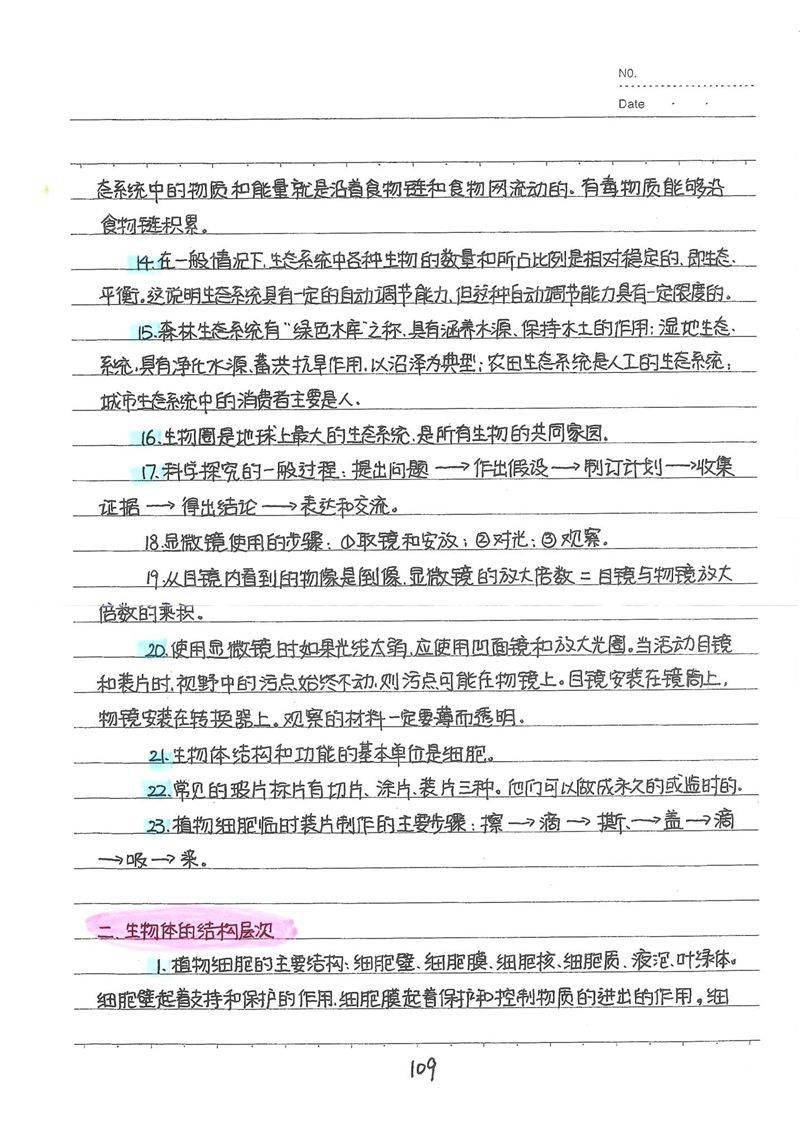 NO.
Date
态系统中的物质和能量就是沿着食物链和食物网流动的。有毒物质能够沿
食物链积累。
14.在一般情况下,生态系统中各种生物的数量和所占比例是相对稳定的,即生态
平衡。这说明生态系统具有一定的自动调节能力,但这种自动调节能力具有一定限度的。
15.森林生态系统有“绿色水库”之称,具有涵养水源、保持水土的作用;湿地生态
系统,具有净化水源、蓄洪抗旱作用,以沼泽为典型;农田生态系统是人工的生态系统;
城市生态系统中的消费者主要是人.
16.生物圈是地球上最大的生态系统,是所有生物的共同家园.
17.科学探究的一般过程:提出问题→作出假设→制订计划→收集
证据→得出结论→表达和交流。
18.显微镜使用的步骤:①取镜和安放;②对光;③观察.
19.从目镜内看到的物像是倒像.显微镜的放大倍数=目镜与物镜放大
倍数的乘积。
20.使用显微镜时如果光线太暗,应使用凹面镜和放大光圈。当活动目镜
和装片时,视野中的污点始终不动,则污点可能在物镜上。目镜安装在镜筒上,
物镜安装在转换器上。观察的材料一定要薄而透明.
21.生物体结构和功能的基本单位是细胞。
22.常见的玻片标片有切片、涂片、装片三种。他们可以做成永久的或临时的.
23.植物细胞临时装片制作的主要步骤:擦→滴→撕→盖→滴
→吸→来。
二.生物体的结构层次
1.植物细胞的主要结构:细胞壁、细胞膜、细胞核、细胞质、液泡、叶绿体。
细胞壁起着支持和保护的作用,细胞膜起着保护和控制物质的进出的作用。细
109